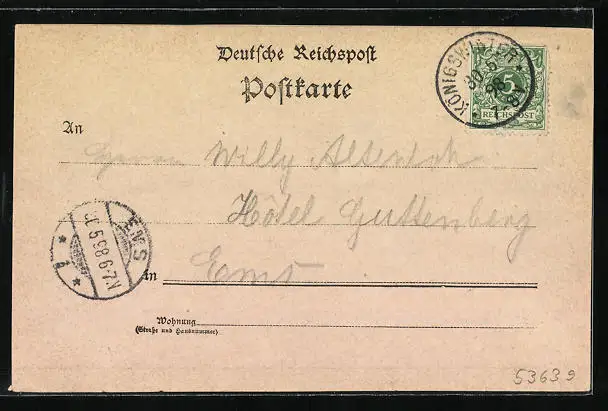 Deutsche Reichspost
Postkarte
KÖNIGSWINTER
30 5
98
5
REICHSPOST
An
Herrn Willy
Hôtel Guttenberg
EMS
5.98.9-12V.
in Ems
Wohnung
(Straße und Hausnummer)
53639